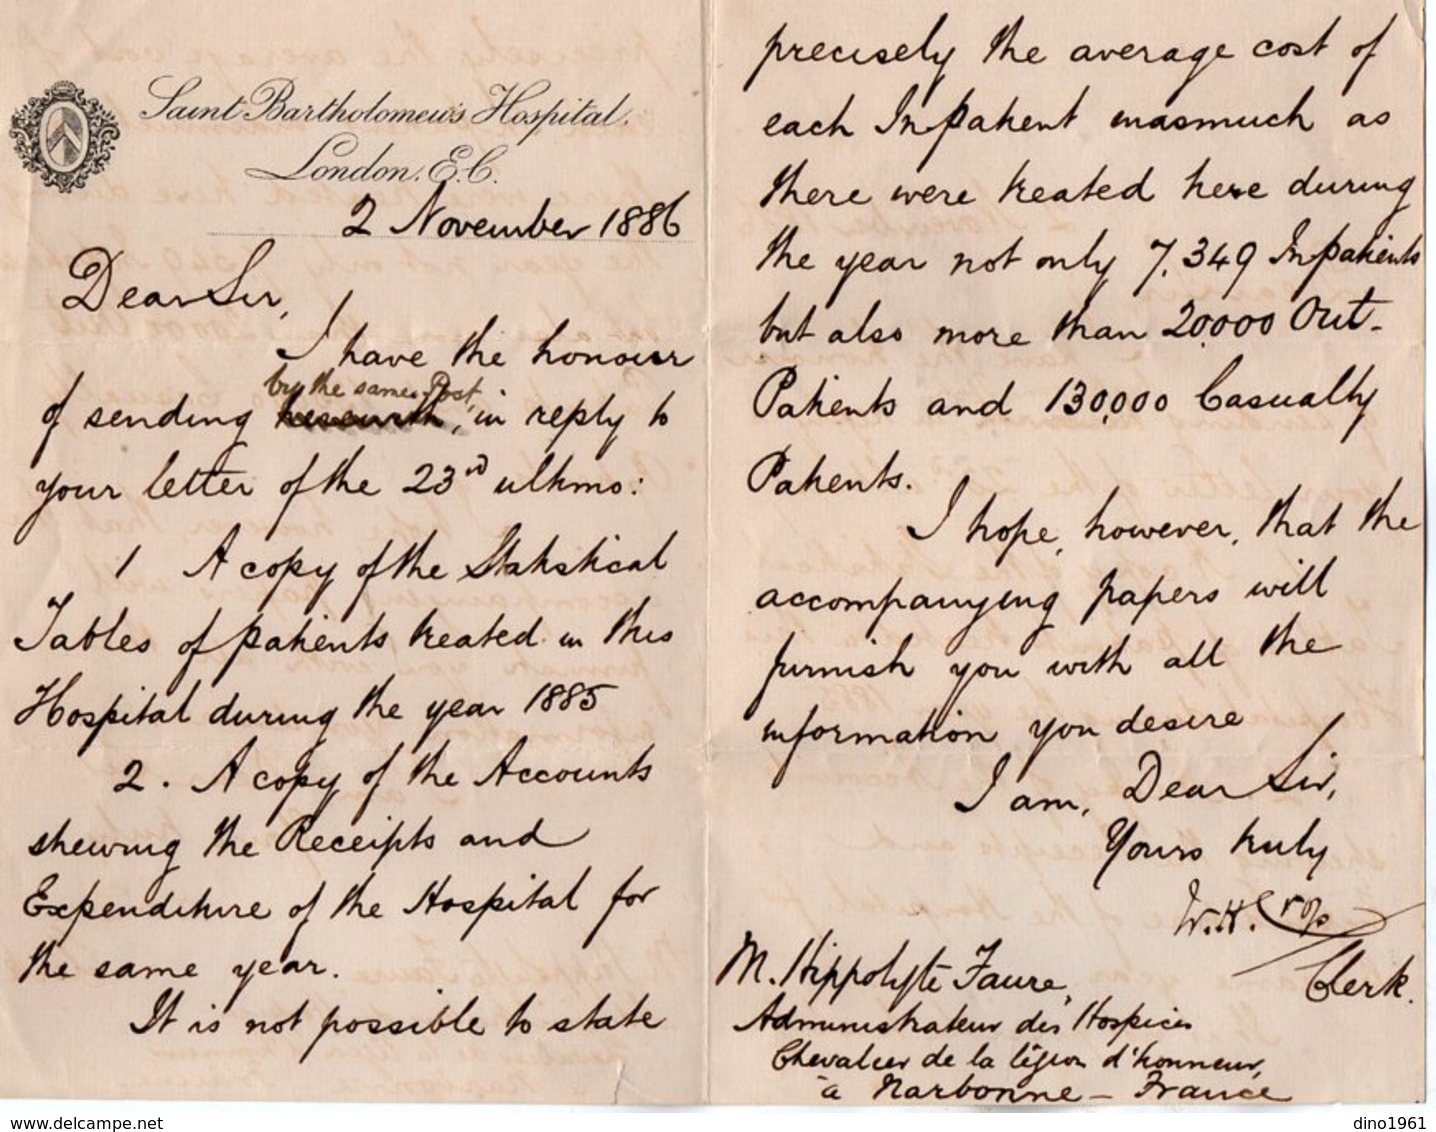 Saint Bartholomew's Hospital.
London. E.C.
2 November 1886
Dear Sir,
I have the honour
by the same Post,
of sending herewith, in reply to
your letter of the 23rd ultimo:
1 A copy of the Statistical
Tables of patients treated in this
Hospital during the year 1885
2. A copy of the Accounts
shewing the Receipts and
Expenditure of the Hospital for
the same year.
It is not possible to state
precisely the average cost of
each In patient inasmuch as
there were treated here during
the year not only 7,349 In patients
but also more than 20,000 Out-
Patients and 130,000 Casualty
Patients.
I hope, however, that the
accompanying papers will
furnish you with all the
information you desire
I am, Dear Sir,
Yours truly
W.H. Cross
Clerk.
M. Hippolyte Faure,
Administrateur des Hospices
Chevalier de la légion d'honneur,
à Narbonne - France
www.delcampe.net
dino1961